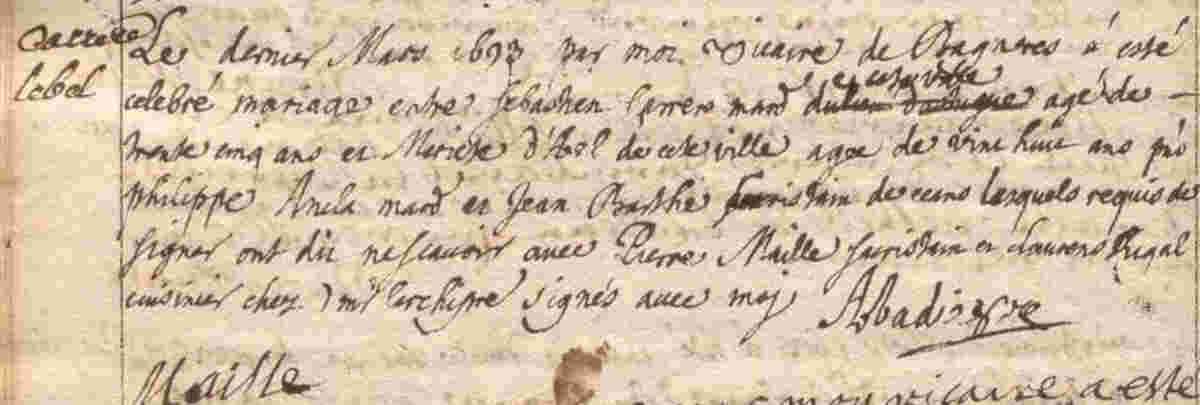 Carrere
lebel
Le dernier Mars 1693 par moi vicaire de Bagneres a esté
celebré mariage entre Sebastien Carrere mard de cete ville agé de
trente cinq ans et Mariete d'Abel de cete ville agee de vint huit ans pnt
philippe Ancla mard et Jean Barthe de ceans lesquels requis de
signer ont dit ne scavoir avec Pierre Maille sacristain et Laurens Rigal
cuisinier chez Mr l'archipre signés avec moy Abadie
Maille
mon vicaire a esté